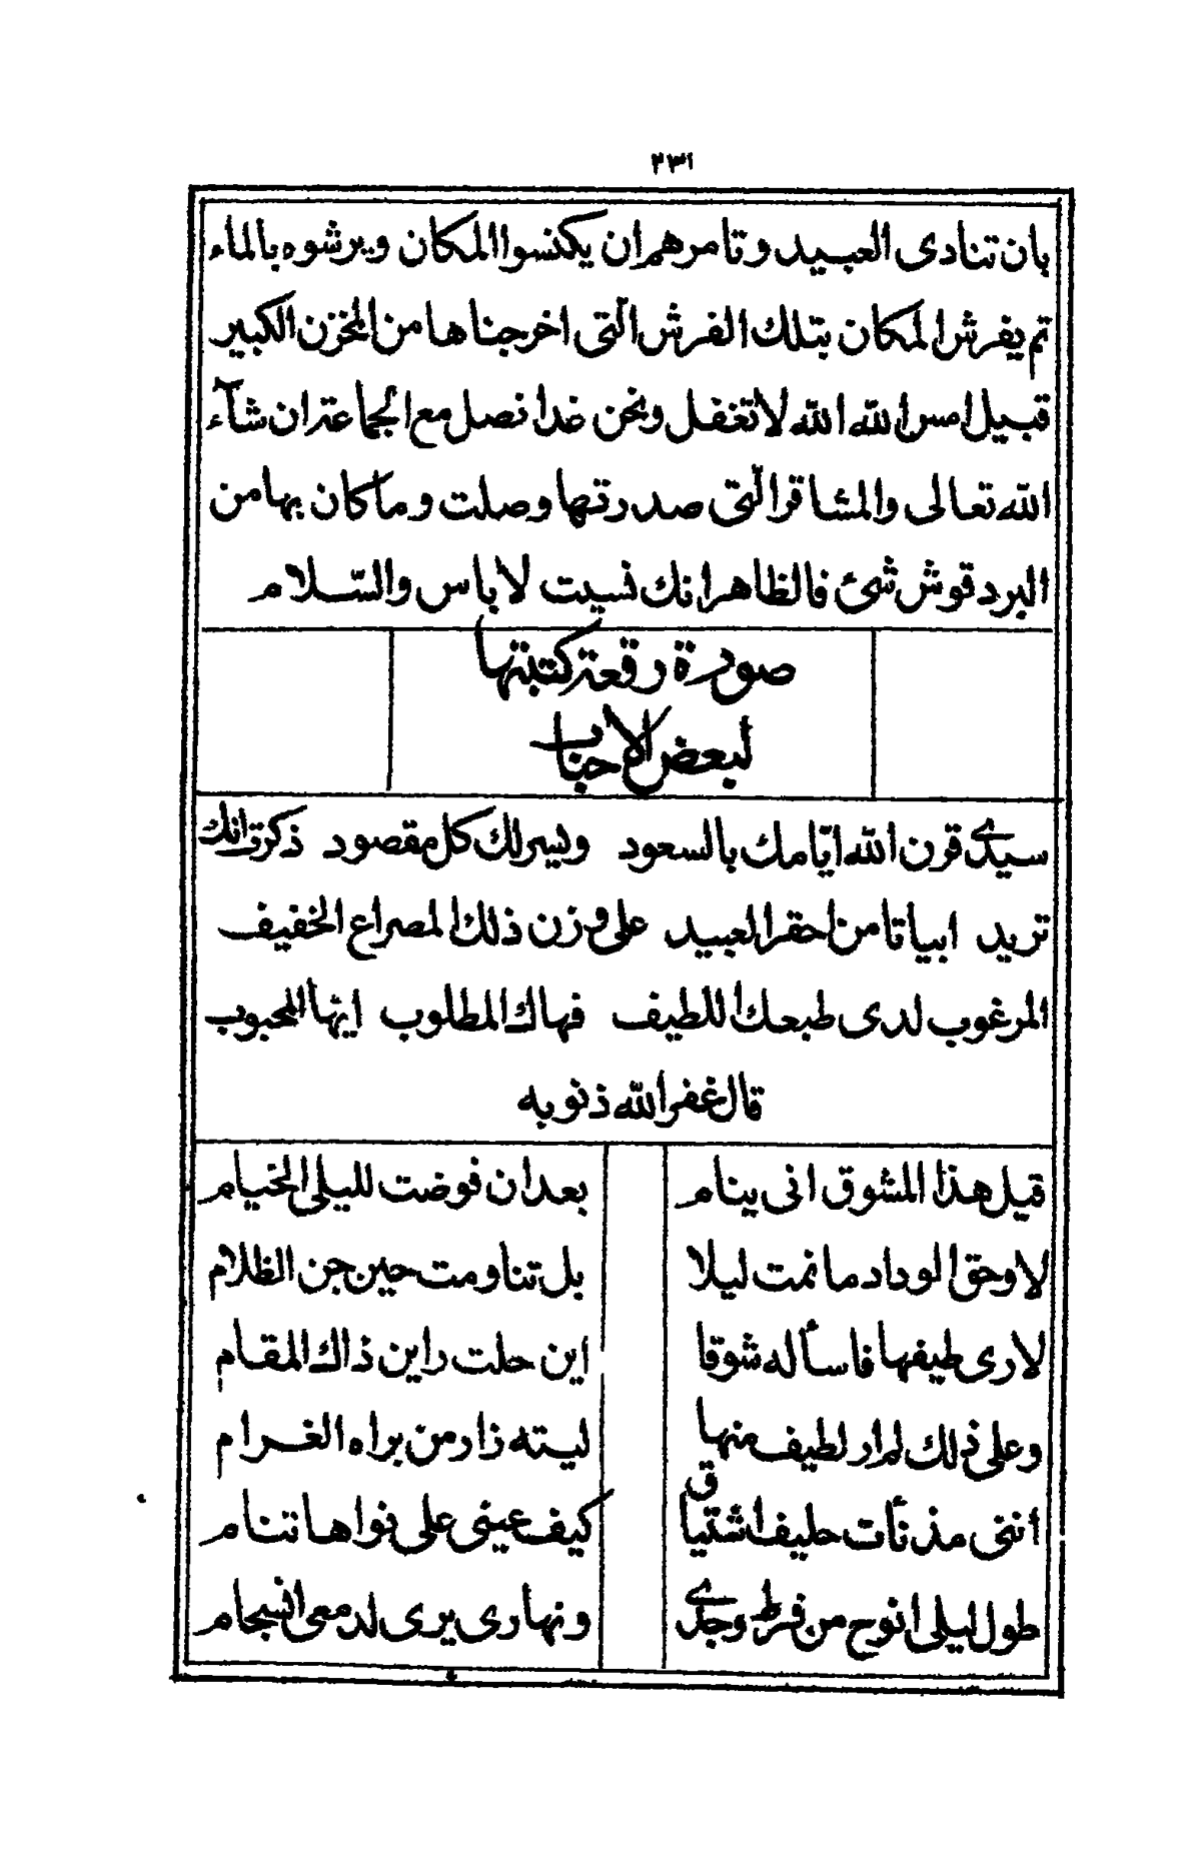 ٢٣١
بان تنادى العبيد وتامرهم ان يكنسوا المكان ويرشوه بالماء
ثم يفرش المكان بتلك الفرش التى اخرجناها من المخزن الكبير
قبيل امس الله الله لا تغفل ونحن غدا نصل مع الجماعة ان شآء
الله تعالى والمشاقر التى صدرتها وصلت وما كان بها من
البردقوش شئ فالظاهر انك نسيت لا باس والسّلام
صورة رقعة كتبتها
لبعض الاحباب
سيدى قرن الله ايّامك بالسعود ويسر لك كل مقصود ذكرت انك
تريد ابياتا من احقر العبيد على وزن ذلك المصراع الخفيف
المرغوب لدى طبعك اللطيف فهاك المطلوب ايها المحبوب
قال غفر الله ذنوبه
قيل هذا المشوق انى ينام بعد ان فوضت لليلى الخيام
لا وحق الوداد ما نمت ليلا بل تناومت حين جن الظلام
لارى طيفها فاسأله شوقا اين حلت واين ذاك المقام
وعلى ذلك لم ار لطيف منها ليته زار من براه الغرام
أننى مذ نأت حليف اشتياق كيف عينى على نواها تنام
طول ليلى انوح من فرط وجدى ونهارى يرى لدمعى انسجام